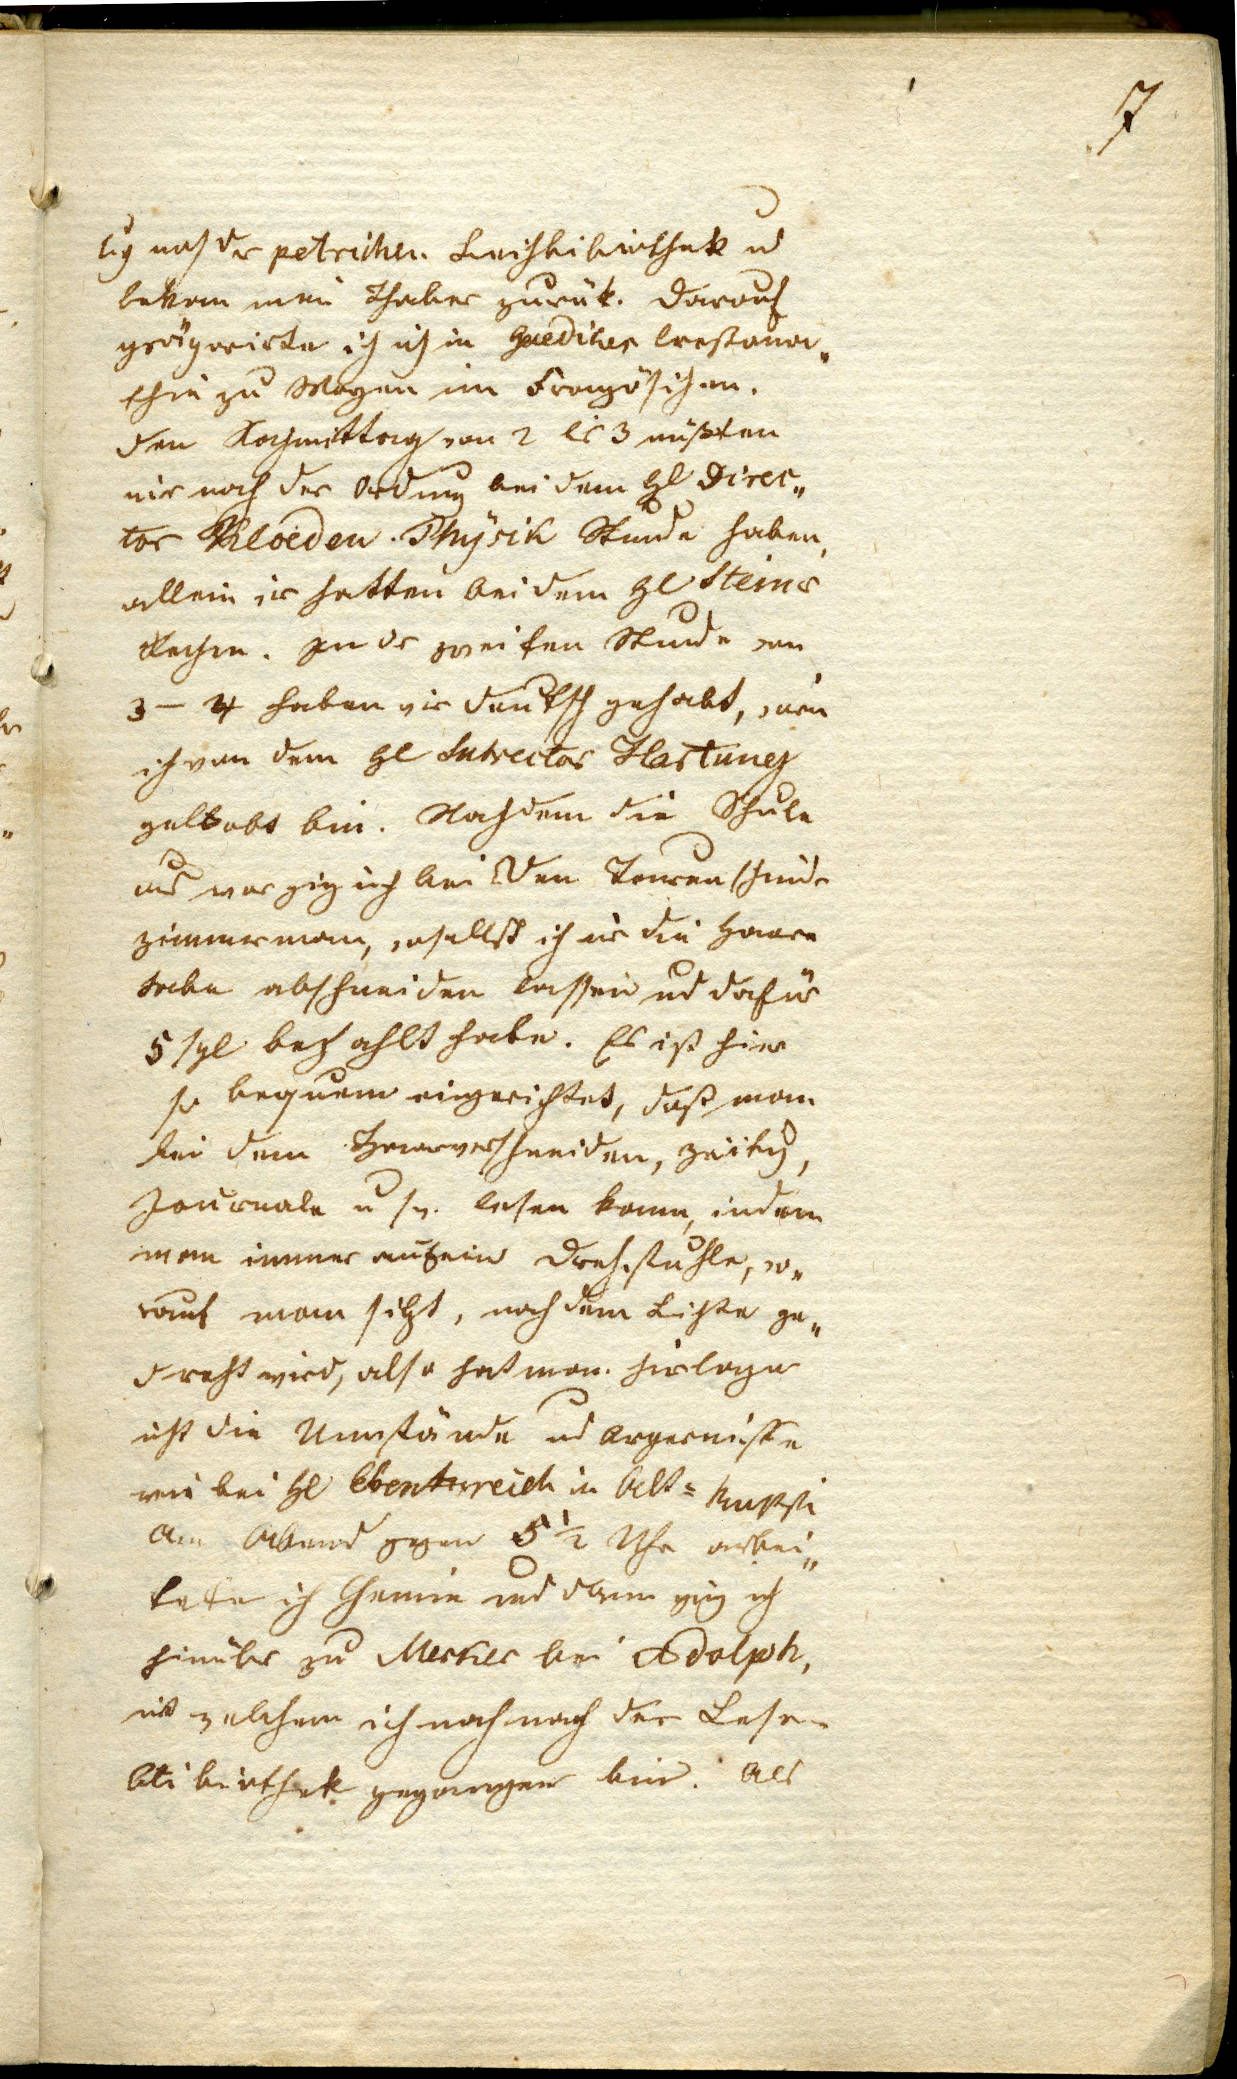 7
ich nach der petrischen Leihbibliothek und
bekam mein Thaler zurük. Darauf
präparirte ich mich in Gedikes Crestoma„
thie zu Morgen im Französischen.
Den Nachmittag von 2 bis 3 müßten
wir nach der Ordnung bei dem HE Direc„
tor Kloeden Physik Stunde haben,
allein wir hatten bei dem HE Steiner
Rechnen. In der zweiten Stunde von
3 – 4 haben wir deutsch gehabt, worin
ich von dem HE Subrector Hartung
gelobt bin. Nachdem die Schule
aus war ging ich bei den
Zimmermann, woselbst ich mir die Haare
habe abschneiden lassen und dafür
5 sgl bezahlt habe. Es ist hier
so bequem eingerichtet, daß man
bei dem Haarverschneiden, Zeitung,
Journale u sw. lesen kann, indem
man immer auf ein Drehstuhle, wo„
rauf man sitzt, nach dem Lichte ge„
dreht wird, also hat man hier
nicht die Umstände und Ärgernisse
wie bei HE in Alt=
Am Abend gegen 5 1/2 Uhr arbei„
tete ich Chemie und dann ging ich
hinüber zu Merker bei Adolph,
mit welchem ich noch nach der Lese
bliebiothek gegangen bin. Als